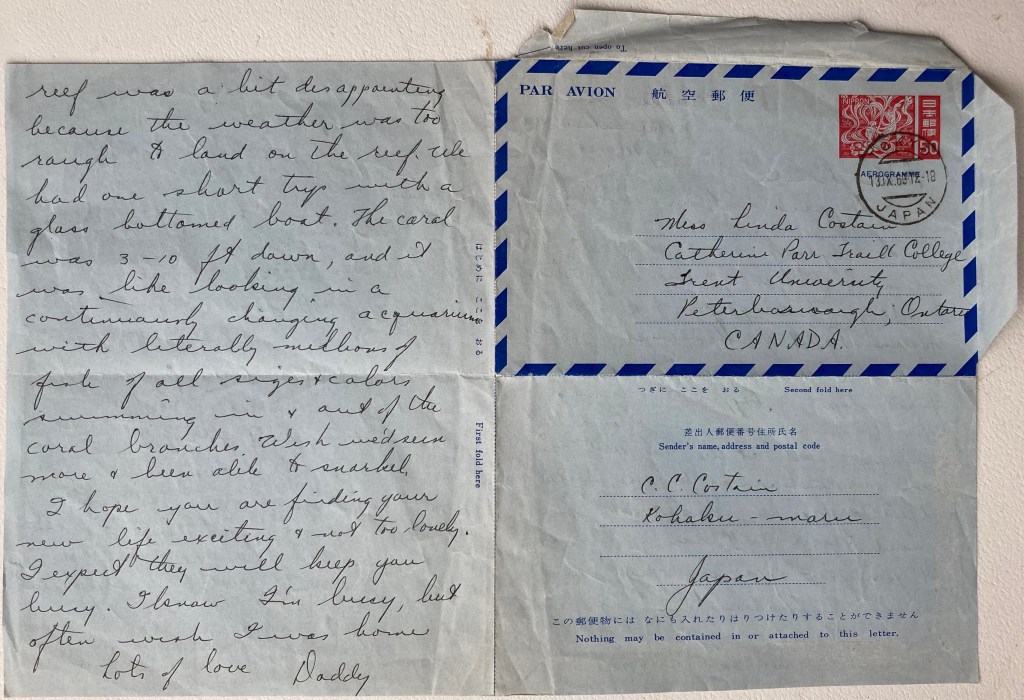 reef was a bit disappointing
because the weather was too
rough to land on the reef. We
had one short trip with a
glass bottomed boat. The coral
was 3-10 ft down, and it
was like looking in a
continuously changing acquarium
with literally millions of
fish of all sizes & colors
swimming in & out of the
coral branches. Wish we'd seen
more & been able to snorkel.
I hope you are finding your
new life exciting & not too lonely.
I expect they will keep you
busy. I know I'm busy, but
often wish I was home
Lots of love Daddy
はじめに ここを おる
First fold here
To open cut here
PAR AVION 航空郵便
NIPPON
日本郵便
150
AEROGRAMME
13.IX.69.12-18
JAPAN
Miss Linda Costain
Catherine Parr Traill College
Trent University
Peterborough, Ontario
CANADA.
つぎに ここを おる Second fold here
差出人郵便番号住所氏名
Sender's name, address and postal code
C.C. Costain
Kohaku-maru
Japan
この郵便物には なにも入れたりはりつけたりすることができません
Nothing may be contained in or attached to this letter.